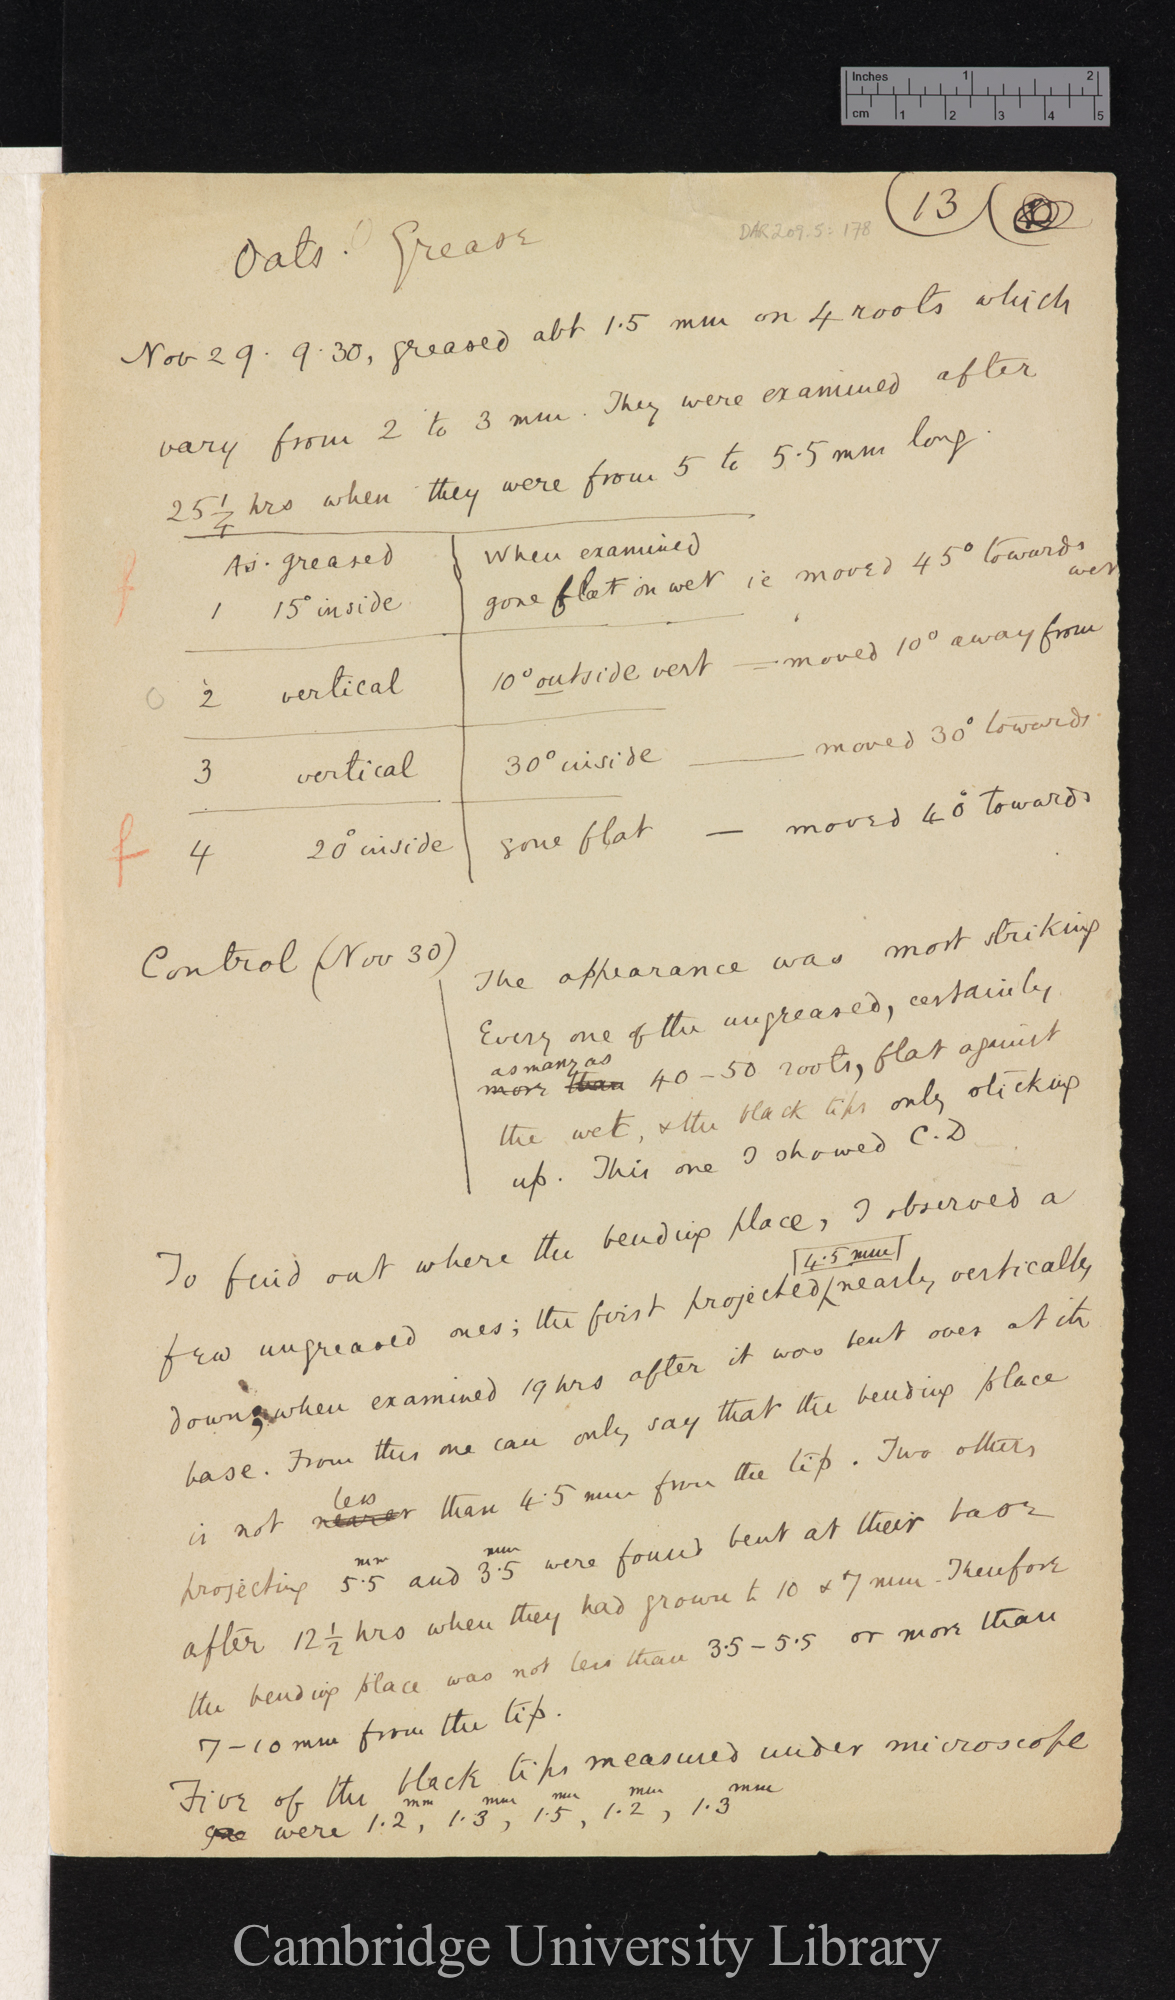 Inches 1 2
cm 1 2 3 4 5
13
DAR 209.5: 178
Oats. Grease
Nov 29. 9.30, greased abt 1.5 mm on 4 roots which
vary from 2 to 3 mm. They were examined after
25 1/4 hrs when they were from 5 to 5.5 mm long.
As greased | When examined
f 1 15° inside | gone flat on wet ie moved 45° towards wet
o 2 vertical | 10° outside vert — moved 10° away from
3 vertical | 30° inside — moved 30° towards
f 4 20° inside | gone flat — moved 40° towards
Control (Nov 30)
The appearance was most striking
Every one of the ungreased, certainly
as many as
more than 40–50 roots, flat against
the wet, & the black tips only sticking
up. This one I showed C.D
To find out where the bending place, I observed a
4.5 mm
few ungreased ones; the first projected nearly vertically
down; when examined 19 hrs after it was bent over at its
base. From this one can only say that the bending place
less
is not nearer than 4.5 mm from the tip. Two others
projecting 5.5 mm and 3.5 mm were found bent at their base
after 12 1/2 hrs when they had grown to 10 & 7 mm. Therefore
the bending place was not less than 3.5–5.5 or more than
7–10 mm from the tip.
Five of the black tips measured under microscope
were 1.2 mm, 1.3 mm, 1.5 mm, 1.2 mm, 1.3 mm
Cambridge University Library